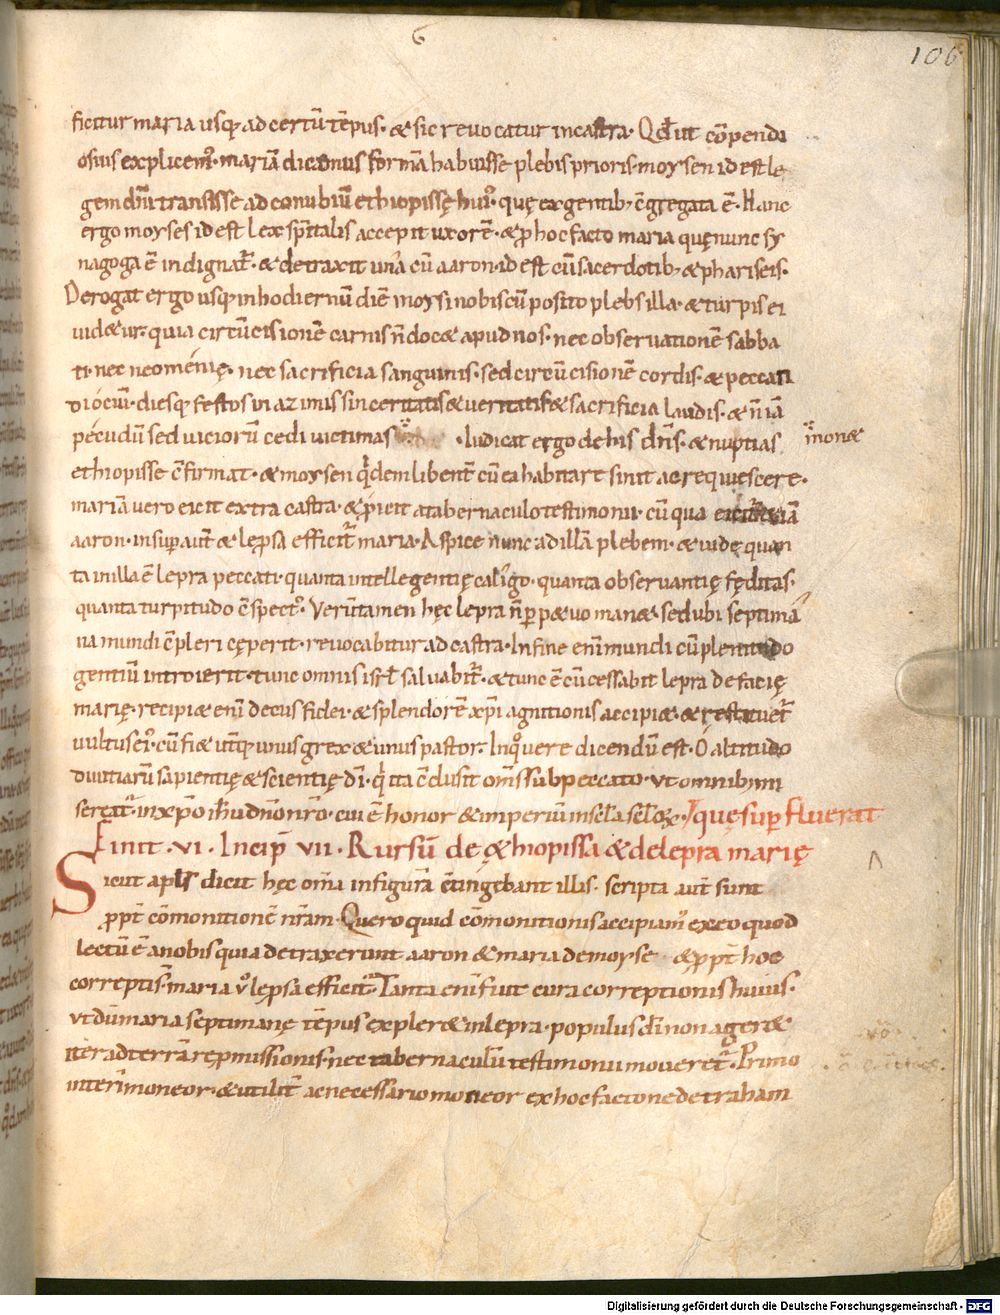 6
106
ficitur maria usq; ad certū tēpus· & sic revocatur in castra· Qd̄ ut cōpendi
osius explicem᷒· mariā dicimus formā habuisse plebis prioris· moysen id est le
gem dn̄i transisse ad conubiū ethiopissę hui᷒· quę ex gentib; c̄gregata ē· Hanc
ergo moyses id est lex sp̄italis accepit uxorē· & p̄ hoc facto maria quę nunc sy
nagoga ē indignat᷒· & detraxit unā cū aaron· id est cū sacerdotib; & phariseis·
Derogat ergo usq; in hodiernū diē moysi nobiscū posito plebs illa· & turpis ei
vid&ur· quia circūcisionē carnis n̄ doc& apud nos· nec observationē sabba
ti· nec neomenię· nec sacrificia sanguinis· sed circūcisionē cordis· & peccati
ociūm· diesq; festos in azimis sinceritatis & veritatis & sacrificia laudis· & n̄ iā
pecudū sed viciorū cedi victimas · Iudicat ergo de his dn̄s· & nuptias
mon&
ethiopissę c̄firmat· & moysen q̇dem libent̄ cū ea habitare sinit ac requiescere·
mariā vero eicit extra castra· & p̄icit a tabernaculo testimonii· cū qua
aaron· insup aut̄ & lępsa efficit᷒ maria· Aspice nunc ad illā plebem· & vide quan
ta in illa ē lepra peccati· quanta intellegentię caligo· quanta observantię fęditas·
quanta turpitudo c̄spect᷒· Verūtamen hęc lepra n̄ p̄p&uo man&· sed ubi septimā
na mundi c̄pleri cęperit· revocabitur ad castra· In fine enī mundi cū plenitudo
gentiū introierit· tunc omnis isrl̄ salvabit᷒· & tunc ē cū cessabit lepra de facię
marię· recipi& enī decus fidei· & splendorē xp̄i agnitionis accipi& & restituet᷒
vultus ei᷒· cū fi& ut᷒q; unus grex & unus pastor· In quo vere dicendū est· O altitudo
divitiarū sapientię & scientię dī· q̇ ita c̄clusit om̄s sub peccato· ut omnib; mi
seret᷒· in xp̄o ih̄u dn̄o nr̄o· cui ē honor & imperiū in scl̄a scl̄oꝝ·
quę sup fluerat
Finit · VI · Incip̄ · VII · Rursū de &hiopissa & de lepra marię
Sicut apl̄s dicit hęc om̄a in figura c̄tingebant illis· scripta aut̄ sunt
p̄pt̄ cōmonitionē nr̄am· Quero quid cōmonitionis accipiam᷒ ex eo quod
lectū ē a nobis quia detraxerunt aaron & maria de moyse· & p̄pt̄ hoc
correptis· maria v̊ lępsa efficit᷒· Tanta enī fuit cura correptionis huius·
ut dū maria septimanę tēpus expler& in lepra· populus dī non ager&
iter ad terrā repmissionis· nec tabernaculū testimonii moveret᷒· Primo
interī moneor· & utilit̄ ac necessario moneor ex hoc facto ne detraham
Digitalisierung gefördert durch die Deutsche Forschungsgemeinschaft · DFG